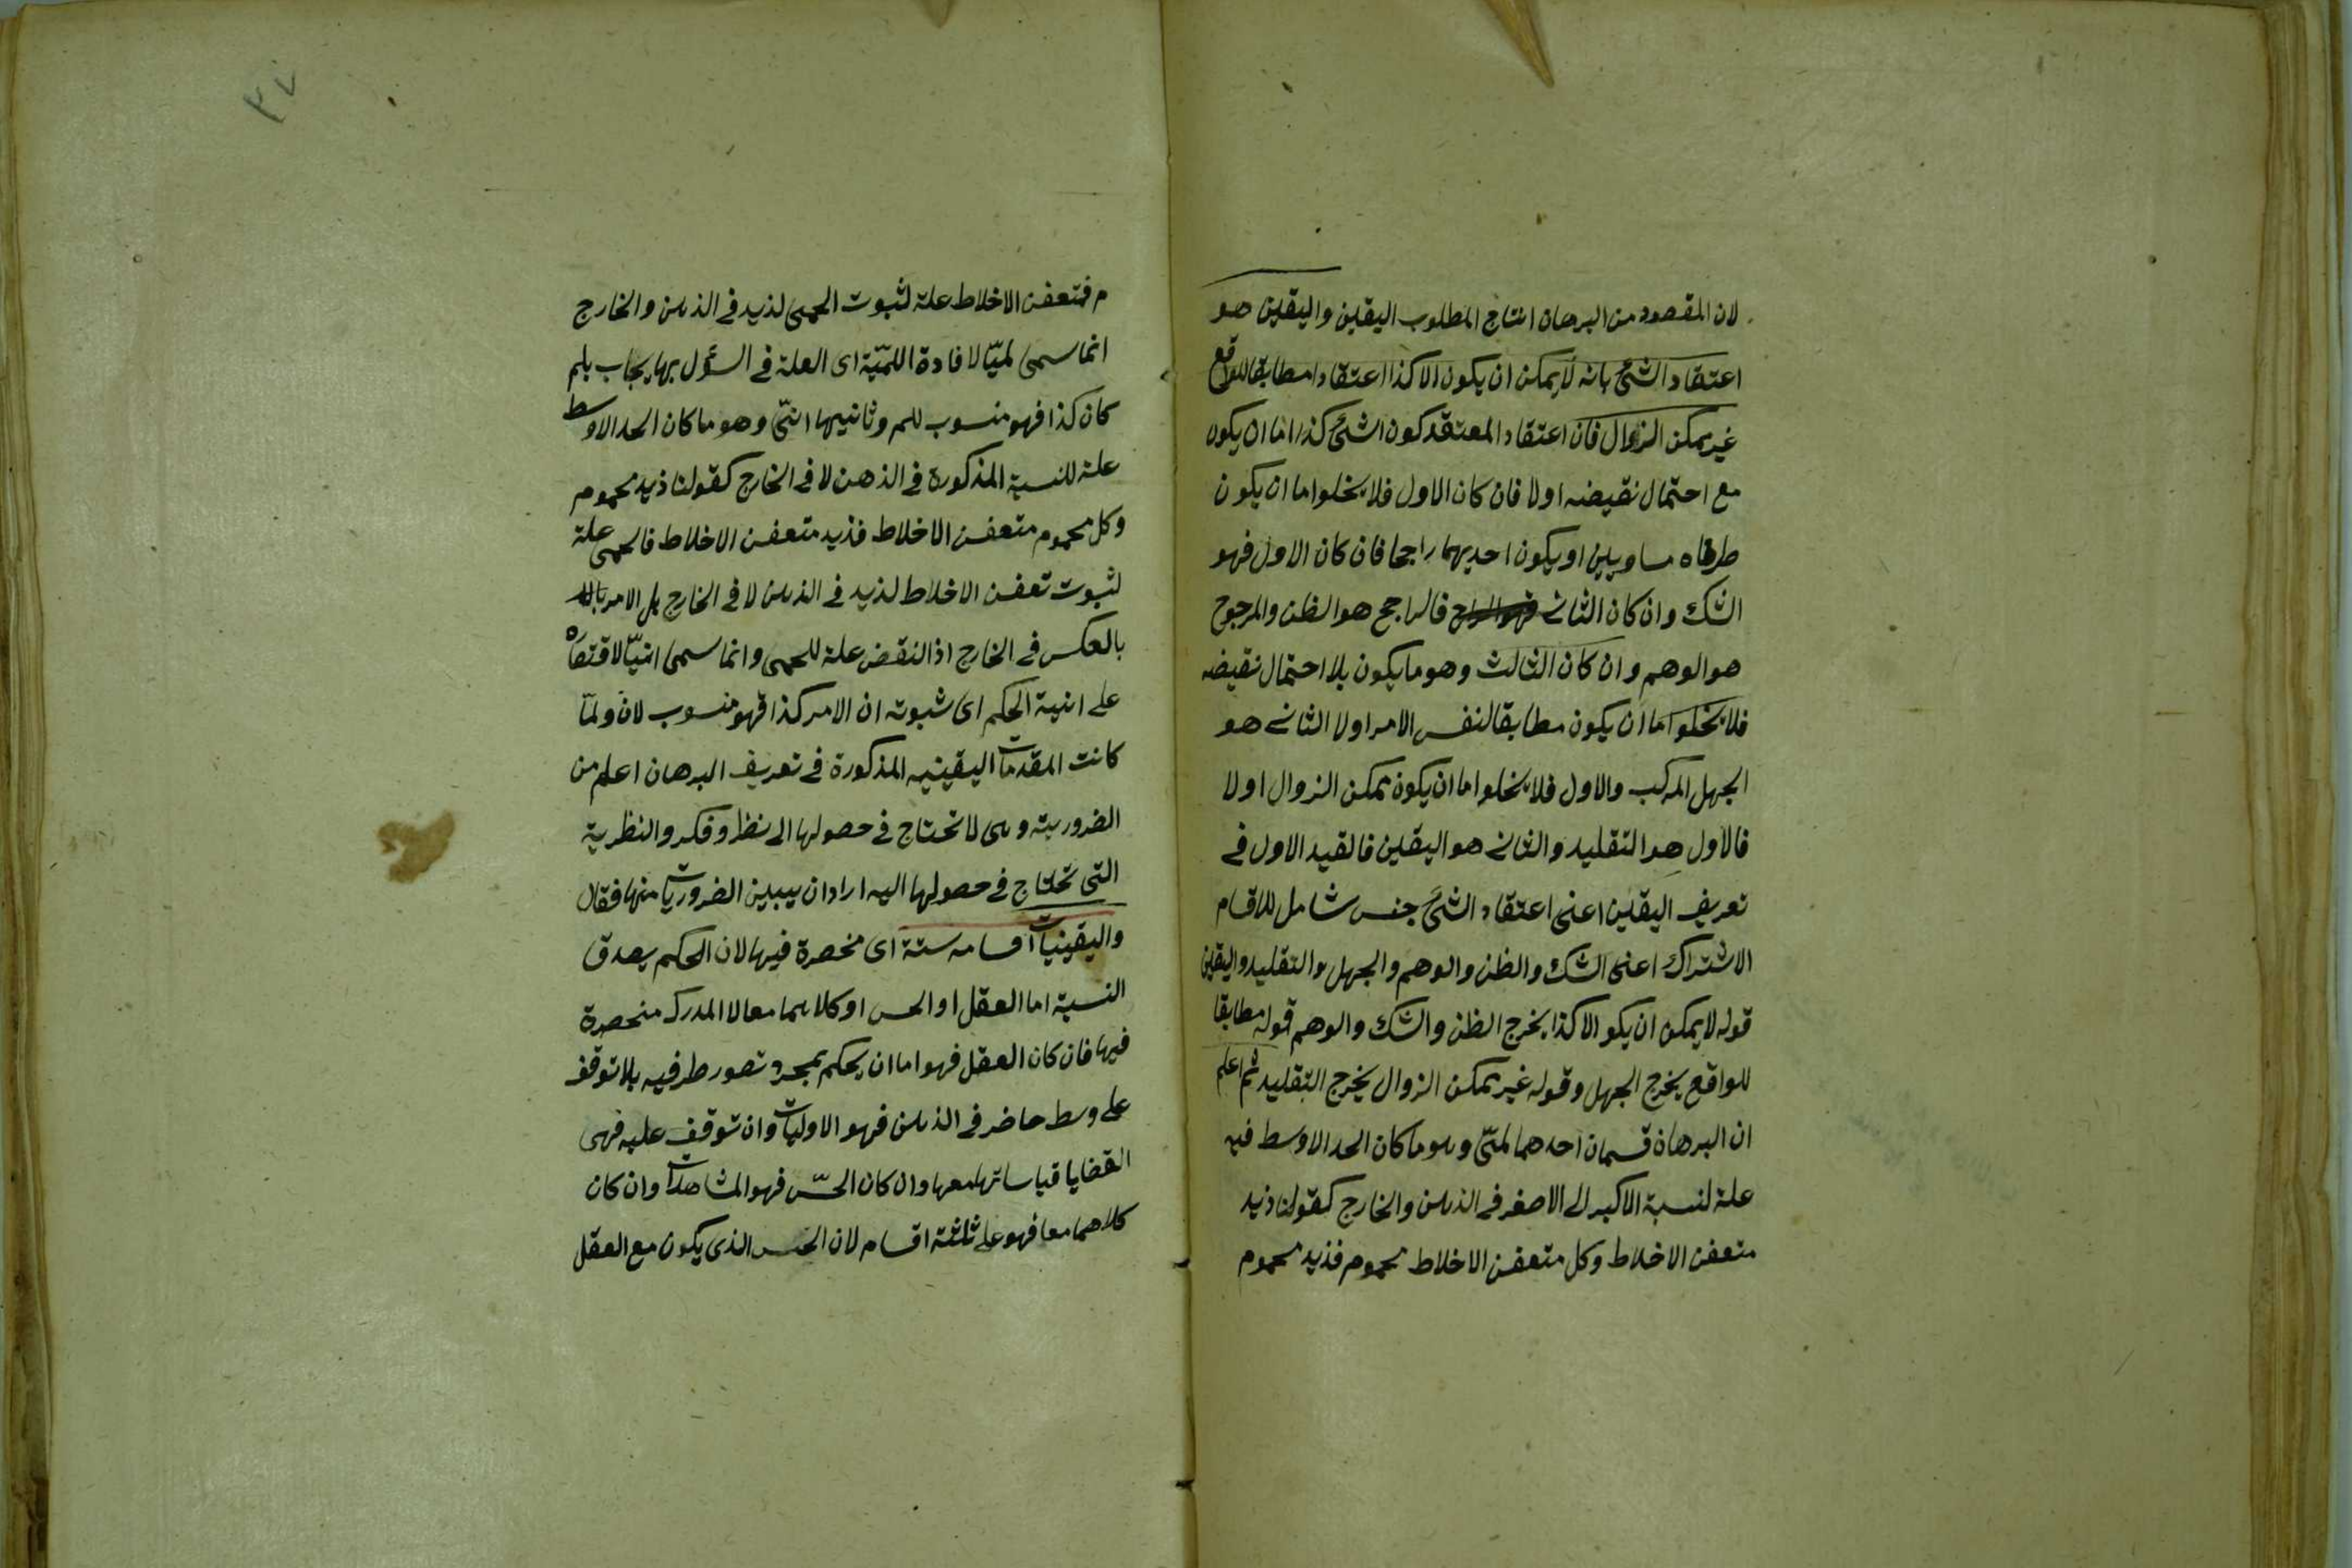 لان المقصود من البرهان انتاج المطلوب اليقين واليقين هو
اعتقاد الشئ بانه لا يمكن ان يكون الا كذا اعتقادا مطابقا للواقع
غير ممكن الزوال فان اعتقاد المعتقد كون الشئ كذا اما ان يكون
مع احتمال نقيضه اولا فان كان الاول فلا يخلوا اما ان يكون
طرفاه مساويين او يكون احديهما راجحا فان كان الاول فهو
الشك وان كان الثانى فهو الراجح فالراجح هو الظن والمرجوح
هو الوهم وان كان الثالث وهو ما يكون بلا احتمال نقيضه
فلا يخلوا اما ان يكون مطابقا لنفس الامر اولا الثانى هو
الجهل المركب والاول فلا يخلوا اما ان يكون ممكن الزوال اولا
فالاول هو التقليد والثانى هو اليقين فالقيد الاول فى
تعريف اليقين اعنى اعتقاد الشئ جنس شامل للاقسام
الاشتراك اعنى الشك والظن والوهم والجهل والتقليد واليقين
قوله لا يمكن ان يكو الا كذا يخرج الظن والشك والوهم قوله مطابقا
للواقع يخرج الجهل وقوله غير ممكن الزوال يخرج التقليد ثم اعلم
ان البرهان قسمان احدهما لمىّ وهو ما كان الحد الاوسط فيه
علة لنسبة الاكبر الى الاصغر فى الذهن والخارج كقولنا ذيد
متعفن الاخلاط وكل متعفن الاخلاط محموم فذيد محموم
٣٧
م فتعفن الاخلاط علة لثبوت الحمى لذيد فى الذهن والخارج
انما سمى لميّا لافادة اللمّيّة اى العلة فى السؤل بها يجاب بلم
كان كذا فهو منسوب للم وثانيهما انىّ وهو ما كان الحد الاوسط
علة للنسبة المذكورة فى الذهن لا فى الخارج كقولنا ذيد محموم
وكل محموم متعفن الاخلاط فذيد متعفن الاخلاط فالحمى علة
لثبوت تعفن الاخلاط لذيد فى الذهن لا فى الخارج بل الامر
بالعكس فى الخارج اذ النقض علة للحمى وانما سمى انيّا لاقتصاه
على انية الحكم اى ثبوته ان الامر كذا فهو منسوب لان ولمّا
كانت المقدمات اليقينيه المذكورة فى تعريف البرهان اعلم من
الضرورية وهى لا تحتاج فى حصولها الى نظر وفكر والنظرية
التى تحتاج فى حصولها اليه اراد ان يبين الضروريات منها فقال
واليقينيات اقسامه ستة اى منحصرة فيها لان الحكم يصدق
النسبة اما العقل او الحس او كلاهما معا لا المدرك منحصرة
فيها فان كان العقل فهو اما ان يحكم بمجرد تصور طرفيه بلا توقف
على وسط حاضر فى الذهن فهو الاوليات وان توقف عليه فهى
القضايا قياساتها معها وان كان الحسّ فهو المشاهدات وان كان
كلاهما معا فهو على ثلثة اقسام لان الحس الذى يكون مع العقل